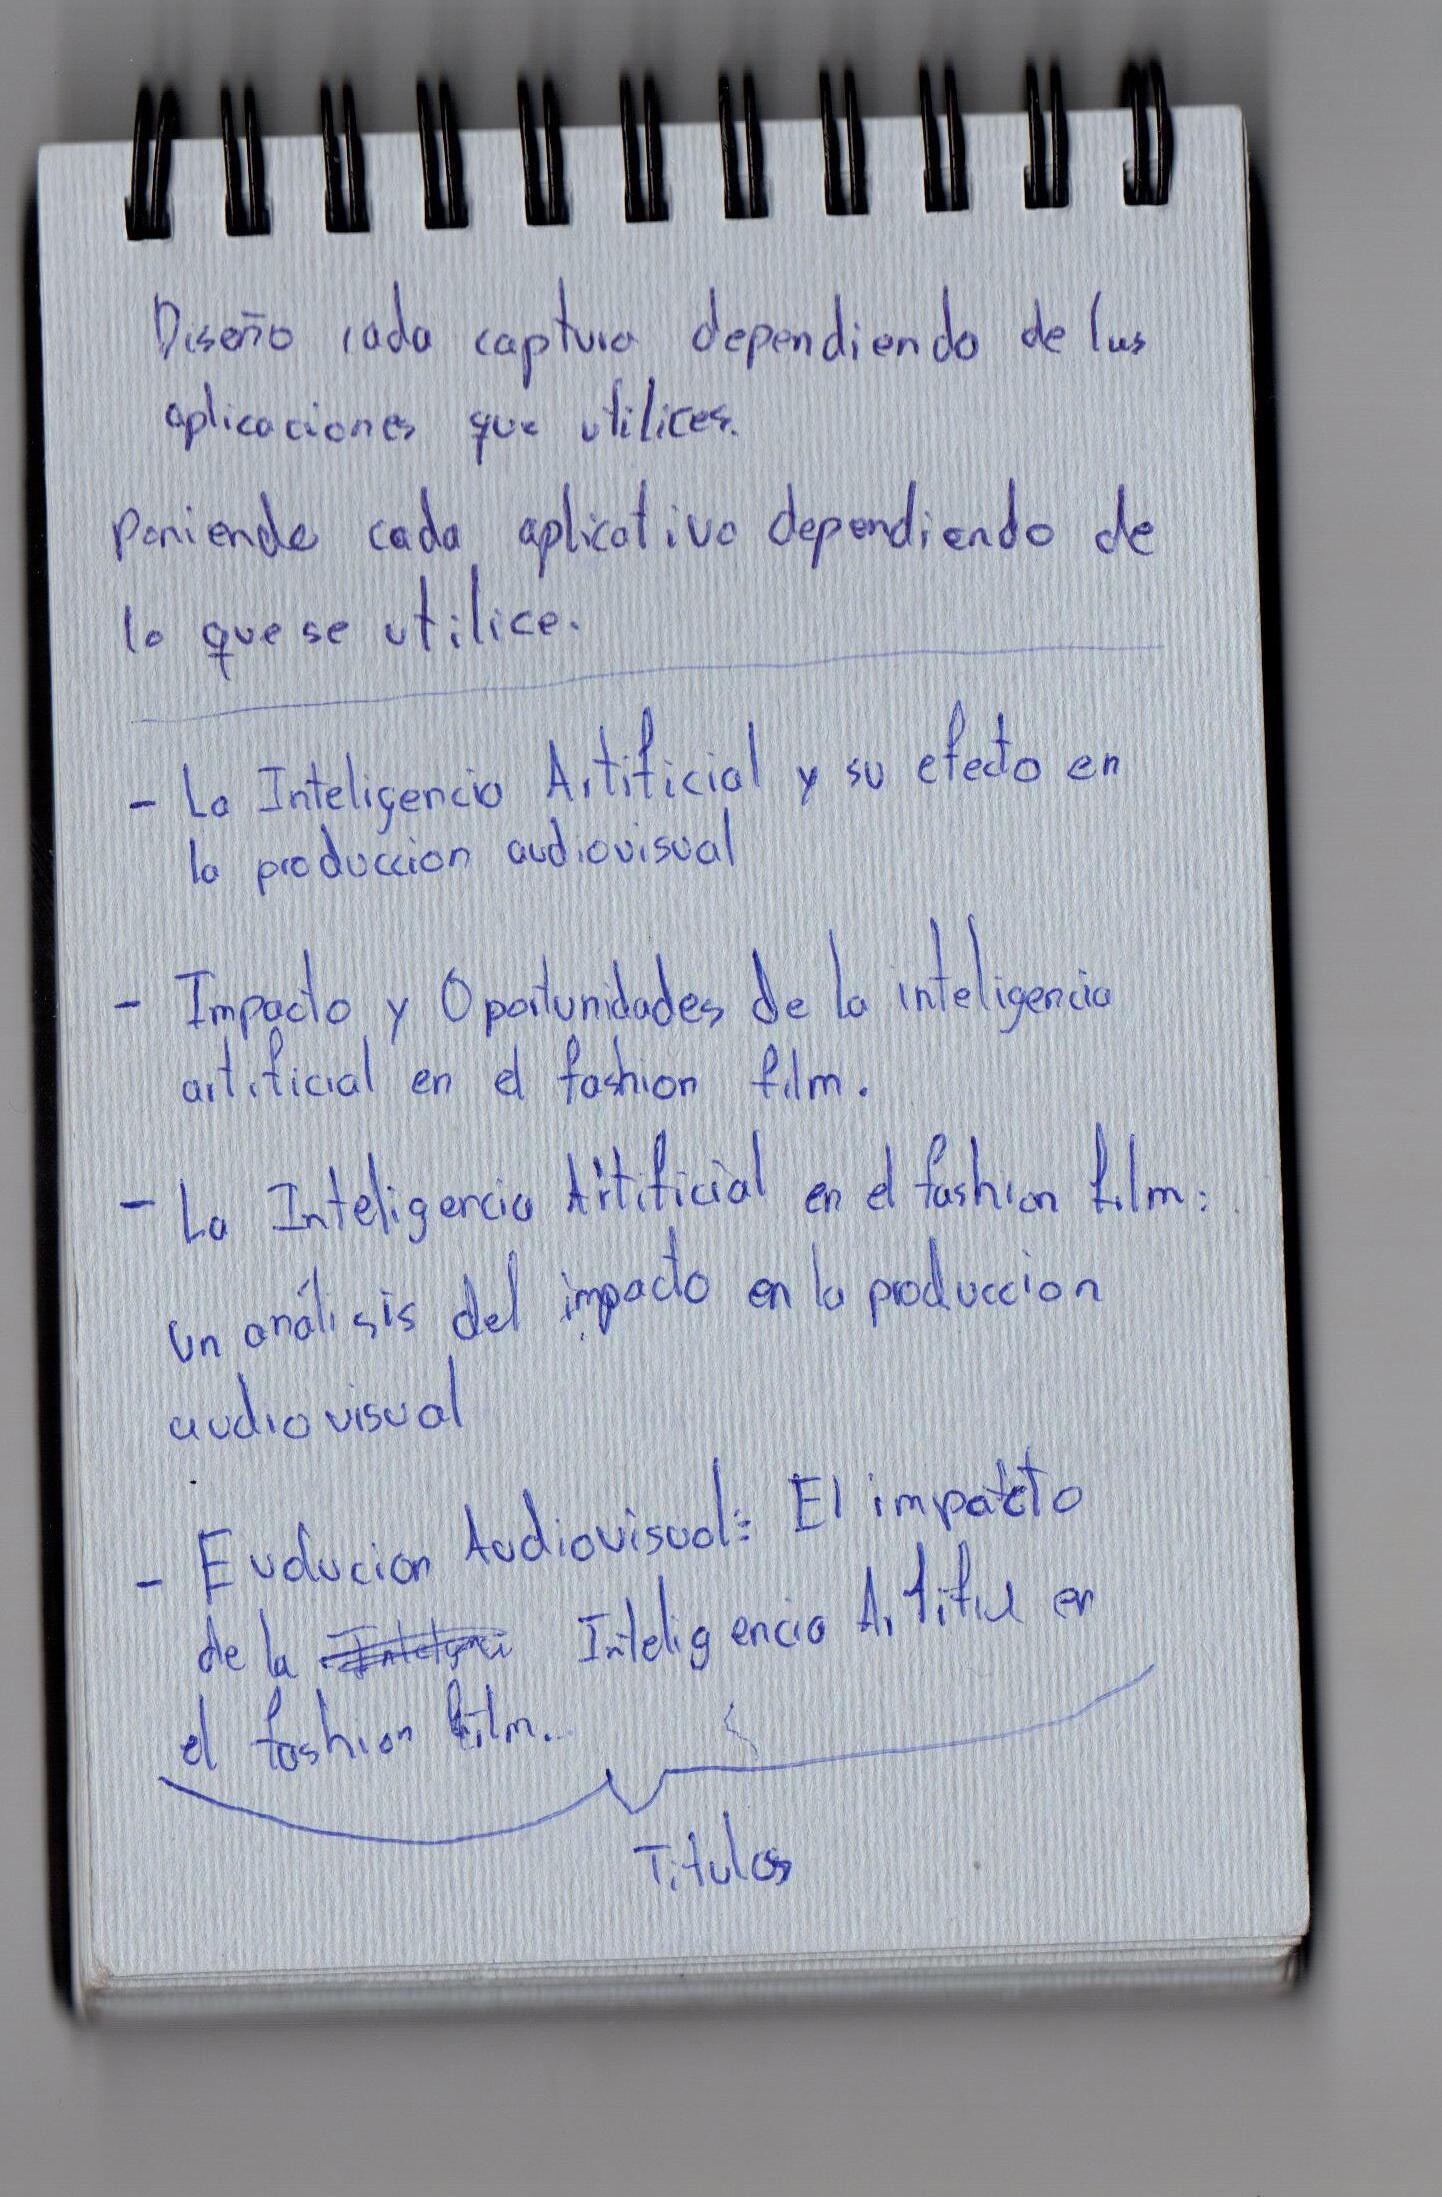 Diseño cada captura dependiendo de las
aplicaciones que utilices.
Poniendo cada aplicativo dependiendo de
lo que se utilice.
- La Inteligencia Artificial y su efecto en
la produccion audiovisual
- Impacto y Oportunidades de la inteligencia
artificial en el fashion film.
- La Inteligencia Artificial en el fashion film:
un análisis del impacto en la produccion
audiovisual
- Evolucion Audiovisual: El impacto
de la Inteligencia en
el fashion film.
Titulos